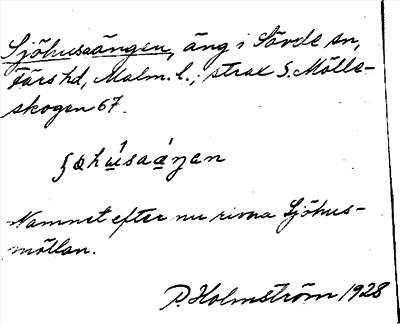 Sjöhusaängen, äng i Sövde sn,
Färs hd, Malm. l.; strax S. Mölle-
skogen 67.
Namnet efter nu rivna Sjöhus-
möllan.
P. Holmström 1928